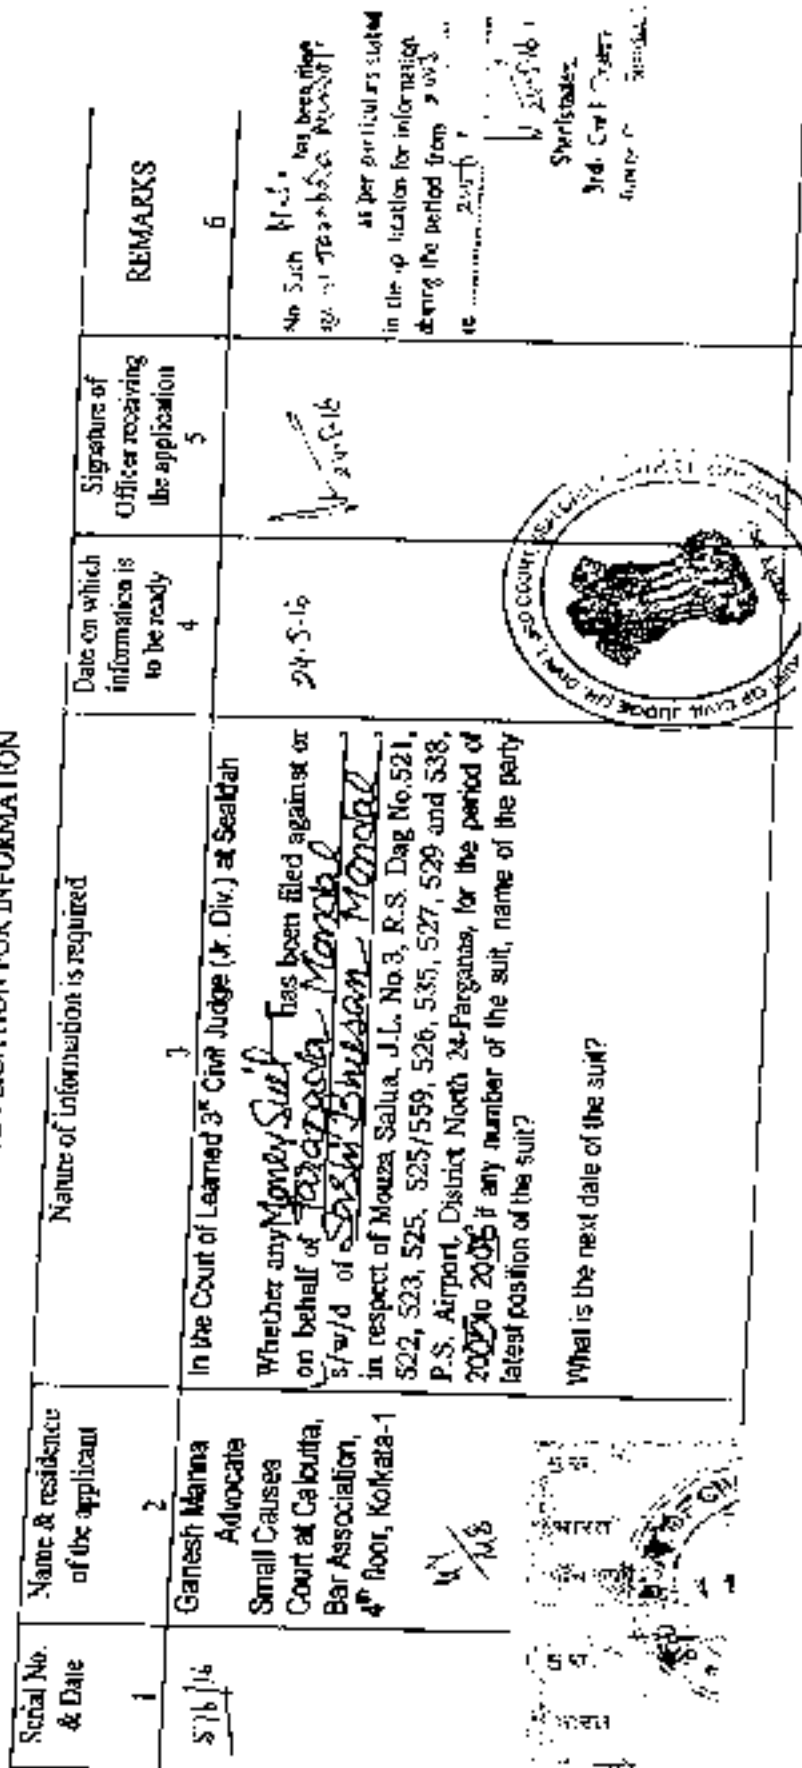 APPLICATION FOR INFORMATION
Serial No.
& Date
1
Name & residence
of the applicant
2
Nature of information is required
3
Date on which
information is
to be ready
4
Signature of
Officer receiving
the application
5
REMARKS
6
Ganesh Manna
Advocate
Small Causes
Court at Calcutta,
Bar Association,
4th floor, Kolkata-1
In the Court of Learned 3rd Civil Judge (Jr. Div.) at Sealdah
Whether any Money Suit has been filed against or
on behalf of Tarapada Mondal
s/w/d of Sashi Bhusan Mondal
in respect of Mouza Salua, J.L. No.3, R.S. Dag No.521,
522, 523, 525, 525/559, 526, 535, 527, 529 and 538,
P.S. Airport, District North 24-Parganas, for the period of
to if any number of the suit, name of the party
latest position of the suit?
What is the next date of the suit?
24-5-16
24-5-16
No Such has been filed
as per particulars stated
in the application for information
during the period from
to
24-5-16
Sheristadar
3rd Civil Court